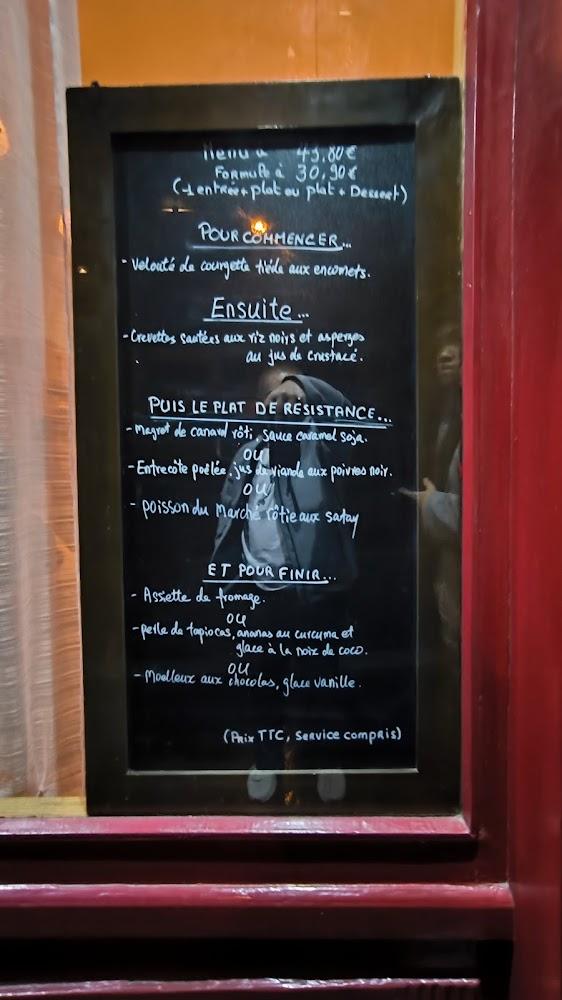 Menu à 43,80€
Formule à 30,90€
(1 entrée + plat ou plat + Dessert)
POUR COMMENCER...
- Velouté de courgette tiède aux encornets.
Ensuite...
- Crevettes sautées aux riz noirs et asperges
au jus de crustacé.
PUIS LE PLAT DE RÉSISTANCE...
- Magret de canard rôti, sauce caramel soja.
OU
- Entrecôte poêlée, jus de viande aux poivres noir.
OU
- poisson du Marché rôtie aux satay
ET POUR FINIR...
- Assiette de fromage.
OU
- perle de tapiocas, ananas au curcuma et
glace à la noix de coco.
OU
- Moelleux aux chocolas, glace vanille.
(Prix TTC, service compris)